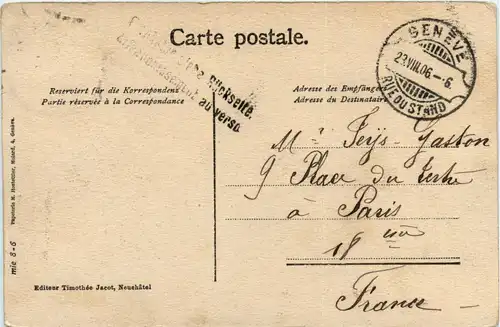 Carte postale.
Rückseite.
au verso
GENÈVE
23.VIII.06.–6.
RUE DU STAND
Reserviert für die Korrespondenz
Partie réservée à la Correspondance
Adresse des Empfängers
Adresse du Destinataire
Gaston
9 Place du Tertre
à Paris
18
France
Papeterie
4, Genève.
mie 8-6
Editeur Timothée Jacot, Neuchâtel